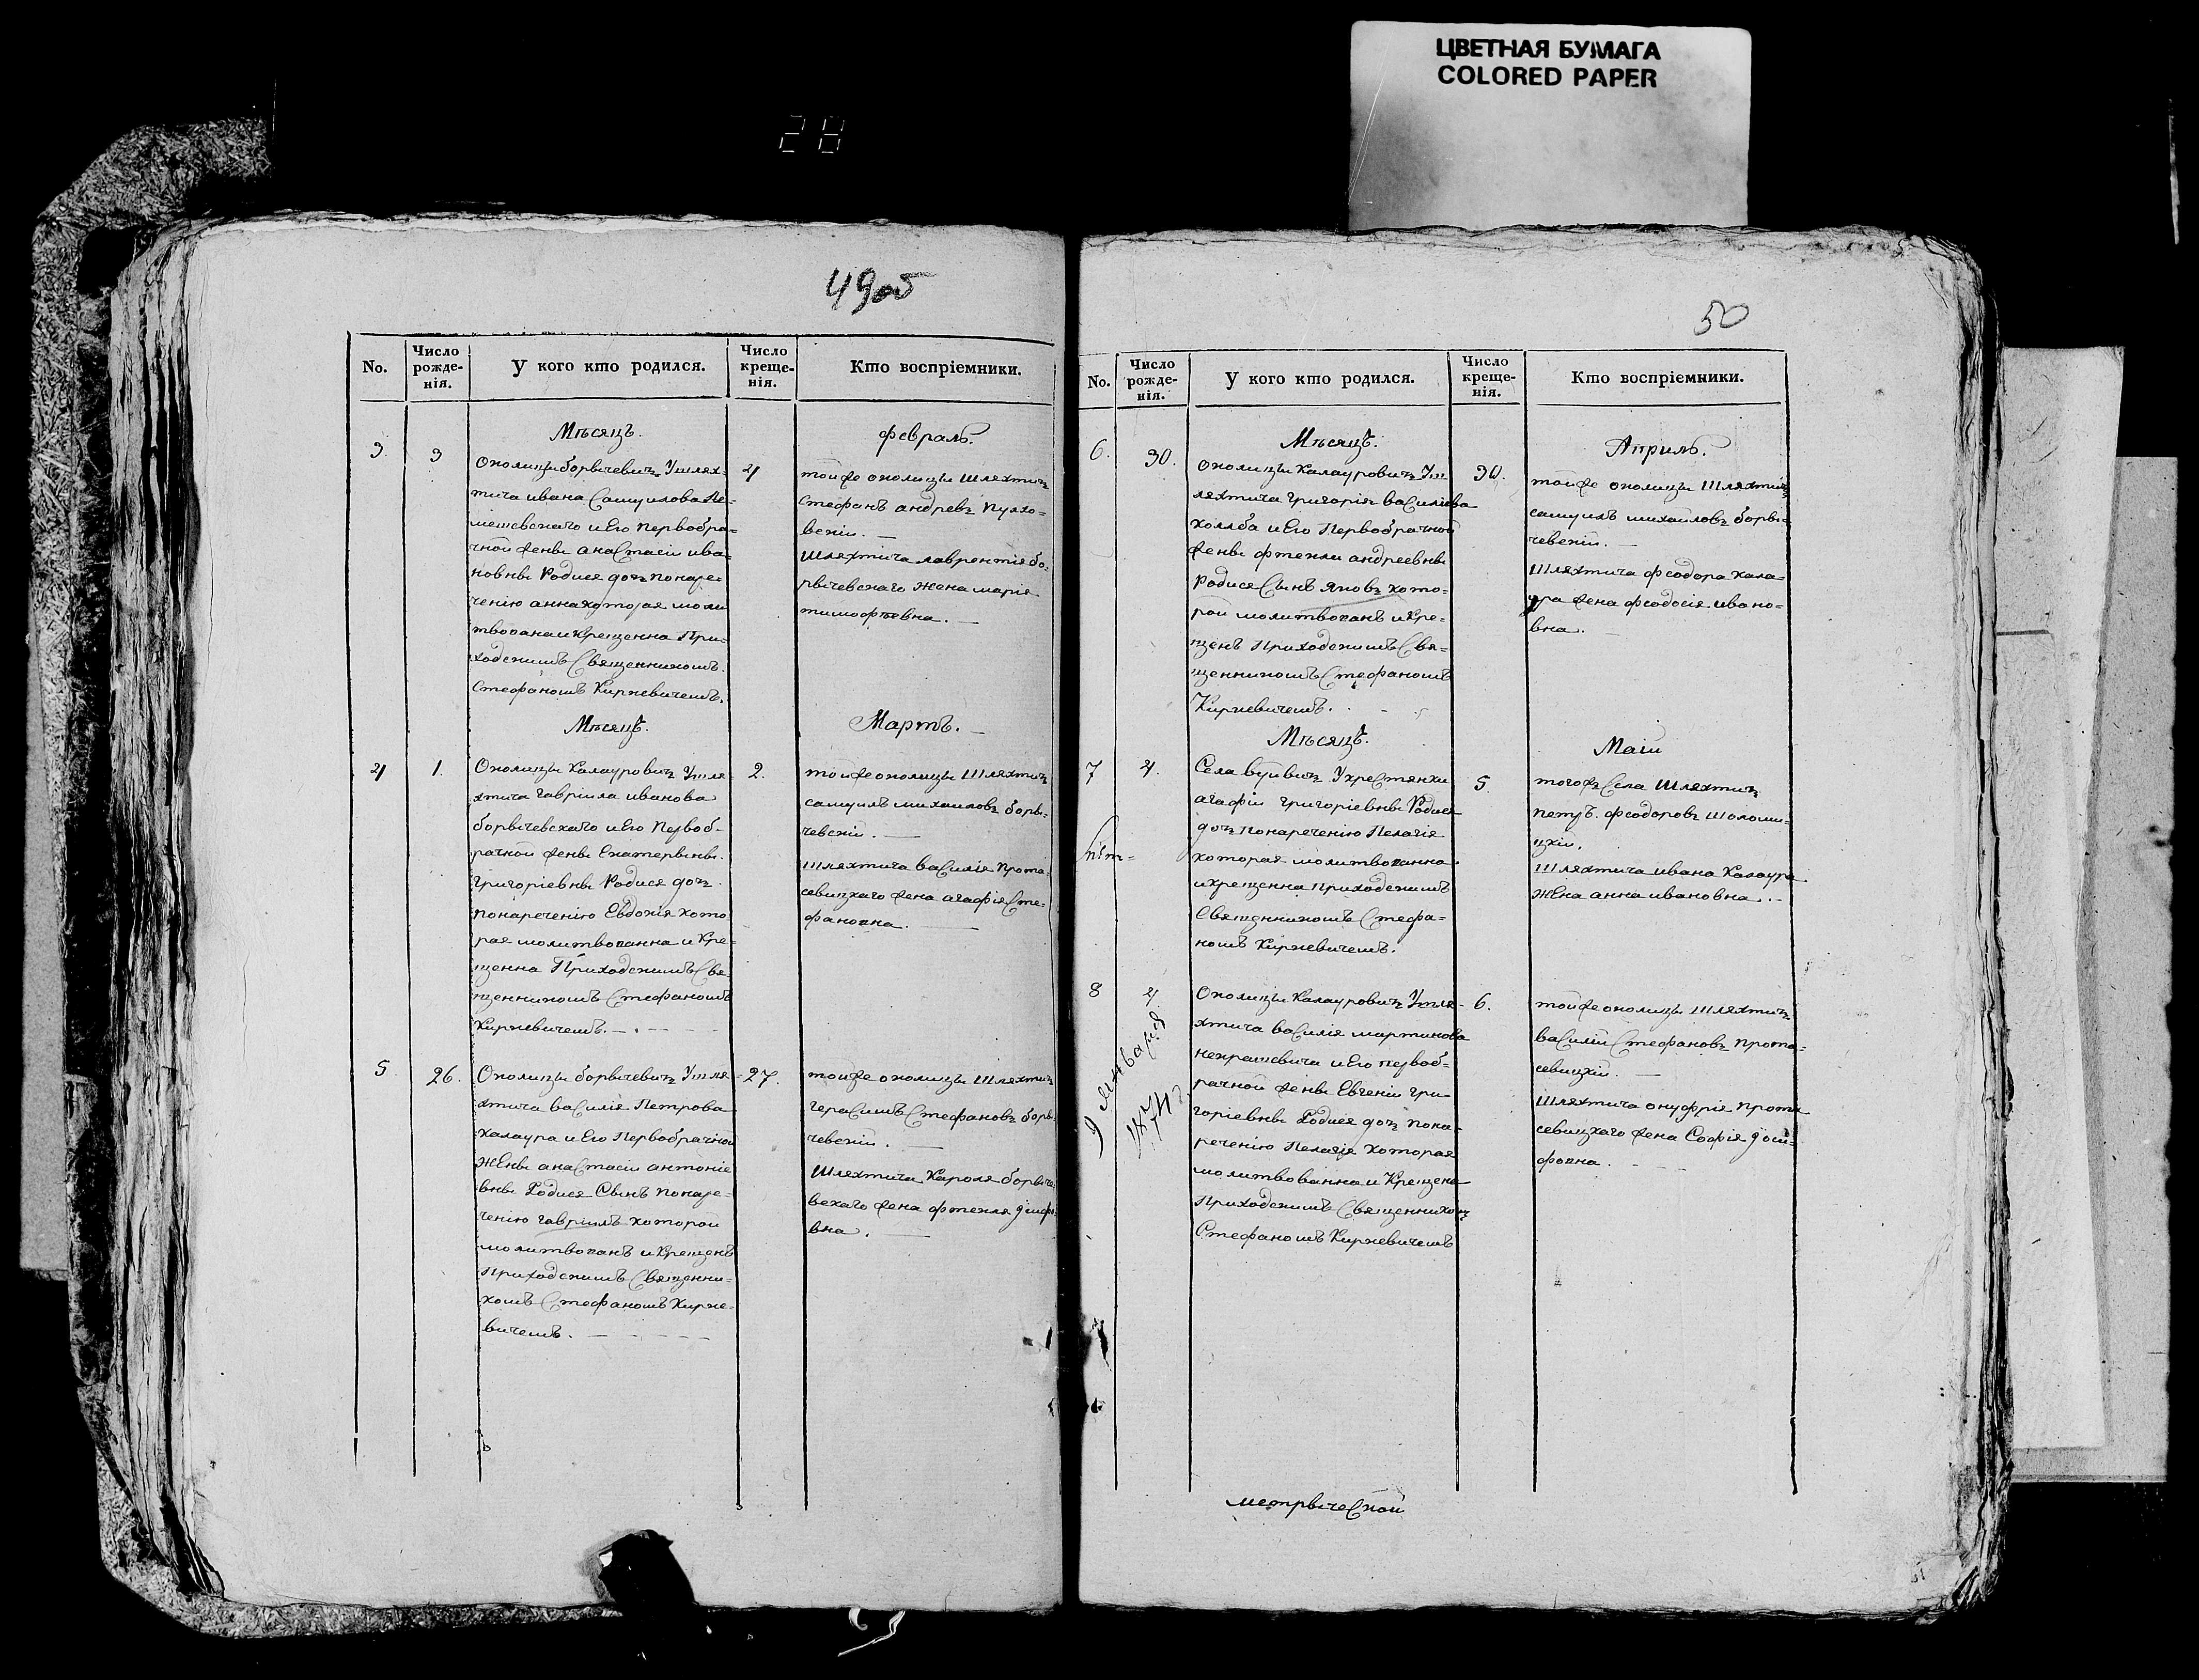 ЦВЕТНАЯ БУМАГА
COLORED PAPER
28
49об
No.
Число рожденія.
У кого кто родился.
Число крещенія.
Кто воспріемники.
Мѣсяцъ.
февраль.
3.
3
Околицы борычевичъ У шлях=
тича ивана Самуилова Ле=
мешевскаго и Его Первобра=
чной жены анаСтасіи ива=
новны Родися дочь понаре=
ченію анна которая моли
твована и Крещенна При=
ходскимъ Священникомъ.
Стефаномъ Киркевичемъ.
4
тойже околицы шляхтичъ
Стефанъ андревъ Пухо=
вскіи.
шляхтича лаврентія бо=
рычевскаго жена марія
тимофѣевна.
Мѣсяцъ.
Мартъ.
4
1.
Околицы Калауровичъ У шля=
хтича гавріила иванова
борычевскаго и Его Первоб=
рачной жены Екатерыны
григоріевны Родися дочь
понареченію Евдокія кото
рая молитвованна и Кре=
щенна Приходскимъ Свя
щенникомъ Стефаномъ
Киркевичемъ.
2.
тойже околицы Шляхтичъ
самуилъ михаиловъ боры=
чевскіи.
шляхтича ваСилія прота=
севицкаго жена агафія Сте=
фановна.
5
26.
Околицы борычевичъ У шля=
хтича ваСилія Петрова
калаура и Его Первобрачной
жЕны анаСтасіи антоніе
вны Родися Сынъ понаре=
ченію гавріилъ которой
молитвованъ и Крещенъ
Приходскимъ Священни=
комъ Стефаномъ Кирке=
вичемъ.
27.
тойже околицы шляхтичъ
гераСимъ Стефановъ боры=
чевскіи.
Шляхтича Кароля борыче
вскаго жена фтекля
вна.
50
No.
Число рожденія.
У кого кто родился.
Число крещенія.
Кто воспріемники.
Мѣсяцъ.
Априль.
6.
30.
Околицы Калауровичъ У ш
ляхтича григорія ваСиліева
холяба и Его Первобрачной
жены фтекли андреевны
Родися Сынъ яковъ кото=
рой молитвованъ и Кре=
щенъ Приходскимъ Свя=
щенникомъ Стефаномъ
Киркевичемъ.
30.
тойже околицы Шляхтичъ
самуилъ михаиловъ боры=
чевскіи.
шляхтича феодора кала=
ура жена феодосія ивано=
вна.
Мѣсяцъ.
Маіи
7
4.
Села вуйвичъ У креСтянки
агафіи григоріевны Родися
дочь понареченію Пелагія
которая молитвованна
и крещенна приходскимъ
Священникомъ Стефа=
номъ Киркевичемъ.
5.
тогожъ Села Шляхтичъ
петръ. феодоровъ шоломи=
цкіи.
шляхтича ивана Калаура
жЕна анна ивановна.
8
4.
9 января
1874 г.
Околицы Калауровичъ У шля=
хтича ваСилія мартинова
некрашевича и Его первоб=
рачной жены Евгеніи гри=
горіевны Родися дочь пона=
реченію Пелагія которая
молитвованна и Крещена
Приходскимъ Священникомъ
Стефаномъ Киркевичемъ
6.
тойже околицы шляхтичъ
ваСиліи Стефановъ прота=
севицкіи.
шляхтича онуфрія прота
севицкаго жена Софія
фовна.
метрычеСкой